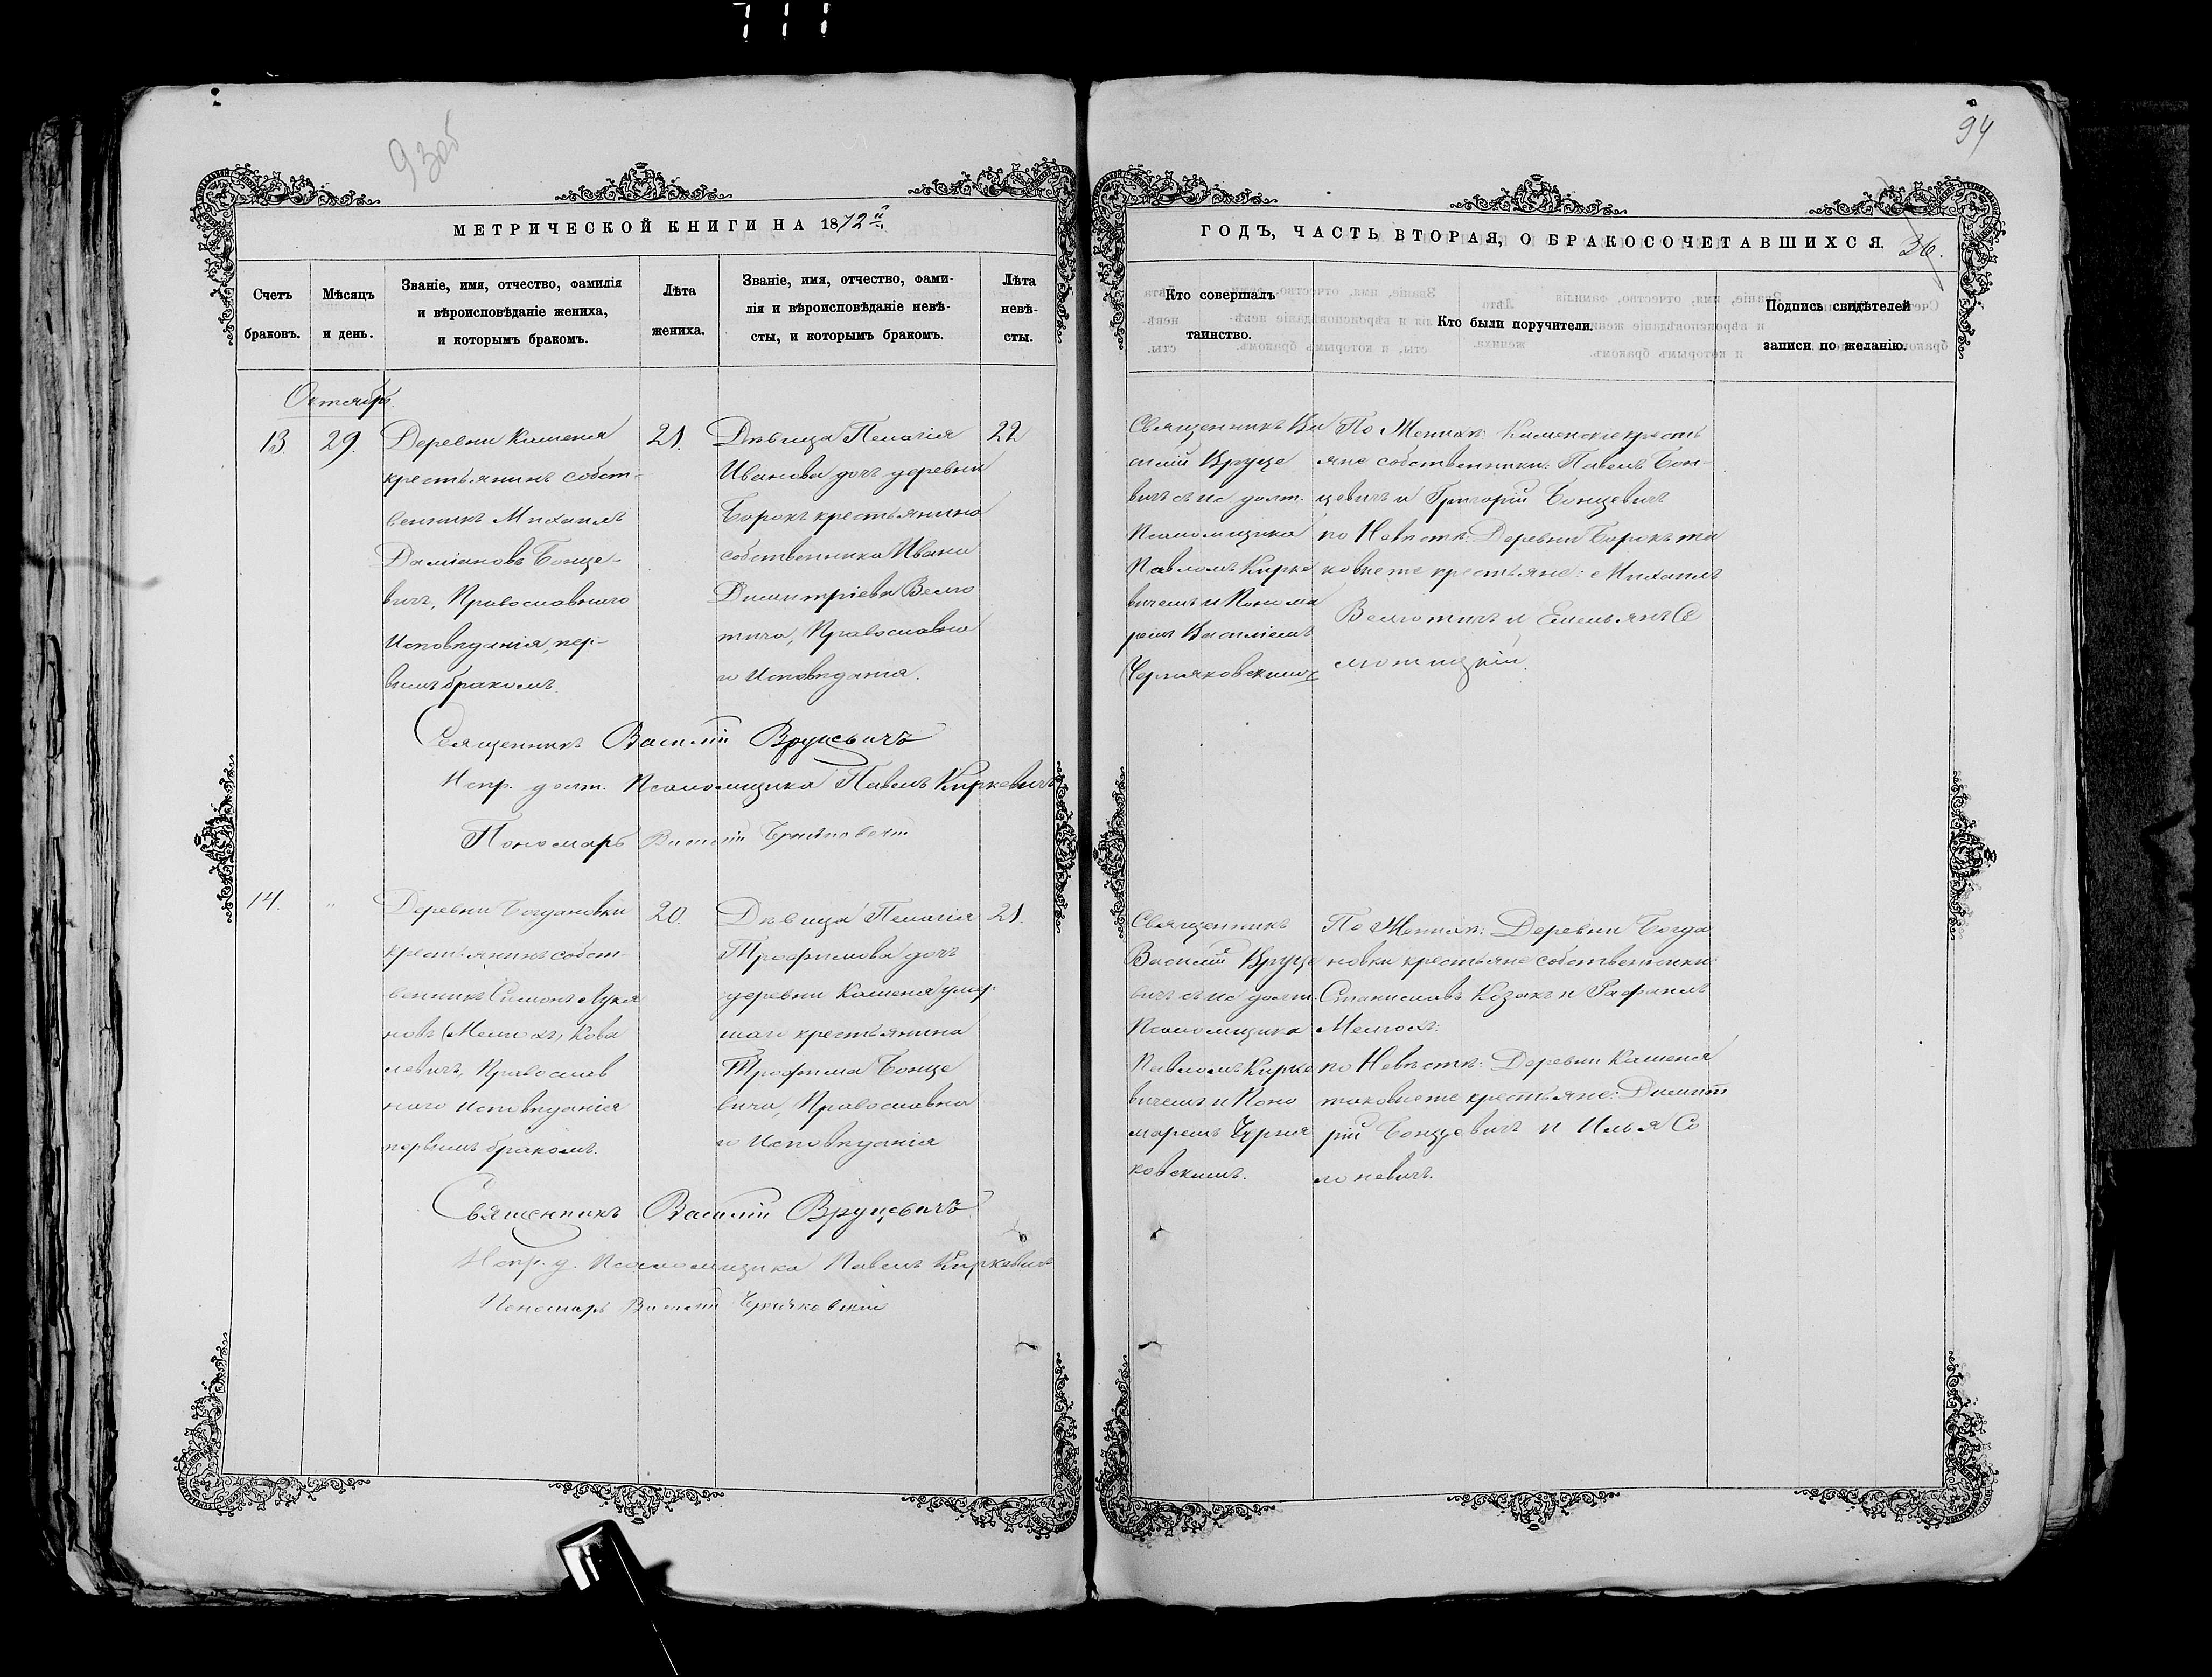 93об
94
МЕТРИЧЕСКОЙ КНИГИ НА 1872й
ГОДЪ, ЧАСТЬ ВТОРАЯ, О БРАКОСОЧЕТАВШИХСЯ.
36.
Счетъ браковъ.
Мѣсяцъ и день.
Званіе, имя, отчество, фамилія
и вѣроисповѣданіе жениха,
и которымъ бракомъ.
Лѣта
жениха.
Званіе, имя, отчество, фами-
лія и вѣроисповѣданіе невѣ-
сты, и которымъ бракомъ.
Лѣта
невѣ-
сты.
Кто совершалъ
таинство.
Кто были поручители.
Подпись свидѣтелей
записи по желанію.
Октябрь.
13.
29.
Деревни Каменя
крестьянинъ собст-
венникъ Михаилъ
Даміановъ Бонце-
вичъ, Православнаго
Исповѣданія, пер-
вымъ бракомъ.
21.
Дѣвица Пелагія
Иванова дочь деревни
Борокъ крестьянина
собственника Ивана
Димитріева
Православна
го Исповѣданія.
22
Священникъ Ва
силій Вруце
вичъ съ ис. долж.
Псаломщика
Павломъ Кирке
вичемъ и Понома
ремъ Василіемъ
Черняковскимъ
По Женихѣ: Каменскіе кресть
яне собственники: Павелъ Бон-
цевичъ и Григорій Бонцевичъ
по Невѣстѣ: Деревни Борокъ та
ковые же крестьяне: Михаилъ
и Емельянъ
Священникъ Василій Вруцевичъ
Испр. долж. Псаломщика Павелъ Киркевичъ
Пономарь Василій Черняковскій
14.
"
Деревни Богдановки
крестьянинъ собст-
венникъ Симонъ Лукя
новъ Кова
левичъ, Православ
наго Исповѣданія
первымъ бракомъ.
20.
Дѣвица Пелагія
Трофимова дочь
деревни Каменя умер-
шаго крестьянина
Трофима Бонце
вича, Православна
го Исповѣданія
21.
Священникъ
Василій Вруце
вичъ съ ис. долж.
Псаломщика
Павломъ Кирке
вичемъ и Поно
маремъ Черня
ковскимъ.
По Женихѣ: Деревни Богда
новки крестьяне собственники:
Станиславъ Козакъ и Рафаилъ
по Невѣстѣ: Деревни Каменя
таковые же крестьяне: Димит
рій Бонцевичъ и Илья Со
лоневичъ.
Священникъ Василій Вруцевичъ
Испр. д. Псаломщика Павелъ Киркевичъ
Пономарь Василій Черняковскій